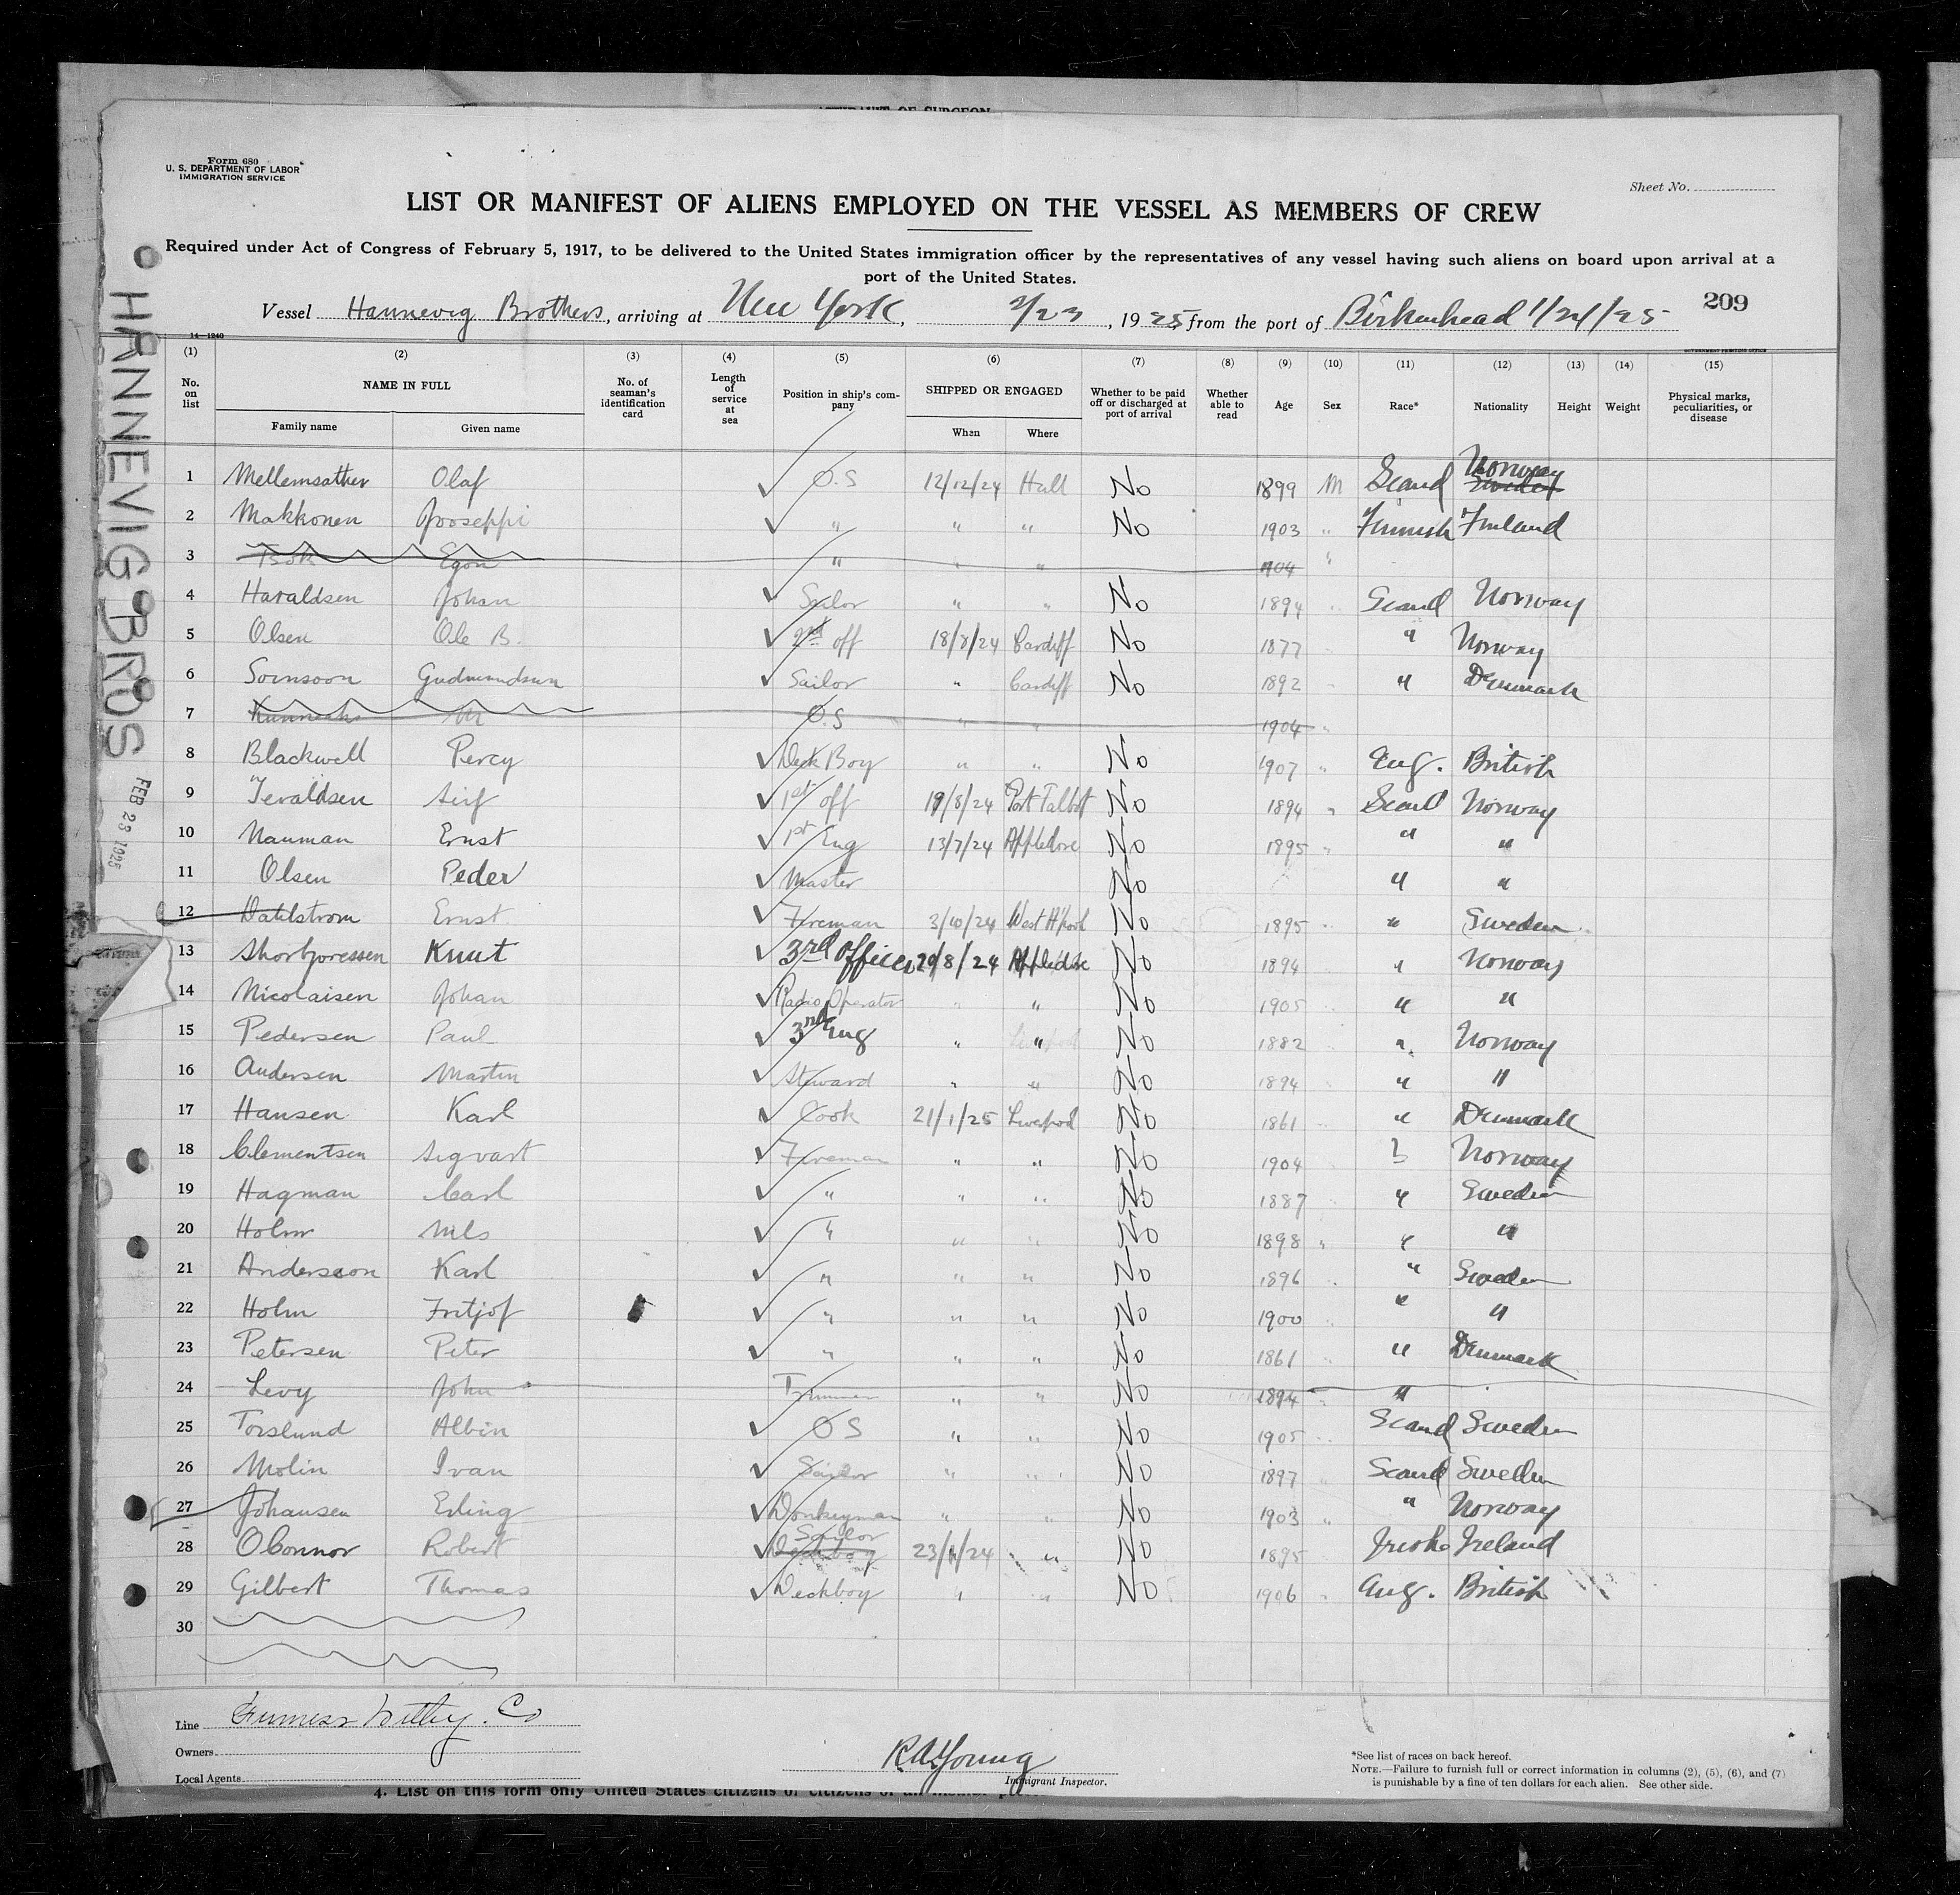 AFFIDAVIT OF SURGEON
Form 680
U. S. DEPARTMENT OF LABOR
IMMIGRATION SERVICE
Sheet No.
LIST OR MANIFEST OF ALIENS EMPLOYED ON THE VESSEL AS MEMBERS OF CREW
Required under Act of Congress of February 5, 1917, to be delivered to the United States immigration officer by the representatives of any vessel having such aliens on board upon arrival at a
port of the United States.
209
Vessel Hannevig Brothers, arriving at New York, 2/23, 1925 from the port of Birkenhead 1/24/25
14—1240
GOVERNMENT PRINTING OFFICE
HANNEVIG BROS
FEB 23 1925
(1) (2) (3) (4) (5) (6) (7) (8) (9) (10) (11) (12) (13) (14) (15)
No. on list NAME IN FULL Family name Given name No. of seaman's identification card Length of service at sea Position in ship's company SHIPPED OR ENGAGED When Where Whether to be paid off or discharged at port of arrival Whether able to read Age Sex Race* Nationality Height Weight Physical marks, peculiarities, or disease
1 Mellemsather Olaf O.S 12/12/24 Hull No 1899 M Scand Norway Sweden
2 Makkonen Jooseppi " " " No 1903 " Finnish Finland
3 Egon " " " 1904 "
4 Haraldsen Johan Sailor " " No 1894 " Scand Norway
5 Olsen Ole B. 2nd off 18/8/24 Cardiff No 1877 " " Norway
6 Soensoon Gudmundsun Sailor " Cardiff No 1892 " " Denmark
7 M O.S " " 1904 "
8 Blackwell Percy Deck Boy " " No 1907 " Eng. British
9 Tevaldsen 1st off 19/8/24 Port Talbot No 1894 " Scand Norway
10 Nauman Ernst 1st Eng 13/7/24 Appledore No 1895 " " "
11 Olsen Peder Master No " "
12 Dahlstrom Ernst Fireman 3/10/24 No 1895 " " Sweden
13 Knut 3rd Officer 29/8/24 Appledore No 1894 " Norway
14 Nicolaisen Johan Radio Operator " " No 1905 " " "
15 Pedersen Paul 3rd Eng " " No 1882 " " Norway
16 Andersen Martin Steward " " No 1894 " " "
17 Hansen Karl Cook 21/1/25 Liverpool No 1861 " " Denmark
18 Clementsen Sigvart Fireman " " No 1904 " Norway
19 Hagman Carl " " " No 1887 " Sweden
20 Holm Nils " " " No 1898 " " "
21 Andersson Karl " " " No 1896 " " Sweden
22 Holm Fritjof " " " No 1900 " " "
23 Petersen Peter " " " No 1861 " " Denmark
24 Levy John Trimmer " " No 1894 " "
25 Torslund Albin OS " " No 1905 " Scand Sweden
26 Molin Ivan Sailor " " No 1897 " Scand Sweden
27 Johansen Erling Donkeyman " " No 1903 " " Norway
28 OConnor Robert Sailor Deckboy 23/1/24 " No 1895 Irish Ireland
29 Gilbert Thomas Deckboy " " No 1906 " Eng. British
30
Line Furness Withy. Co
Owners
Local Agents
R A Young
Immigrant Inspector.
*See list of races on back hereof.
NOTE.—Failure to furnish full or correct information in columns (2), (5), (6), and (7)
is punishable by a fine of ten dollars for each alien. See other side.
4. List on this form only United States citizens or citizens of